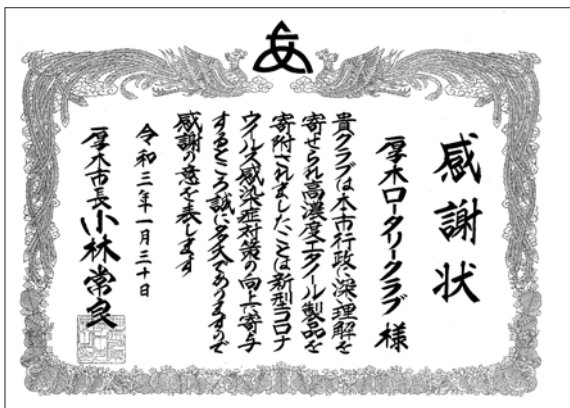 感謝状
厚木ロータリークラブ様
貴クラブは本市行政に深い理解を
寄せられ高濃度エタノール製品を
寄附されましたことは新型コロナ
ウイルス感染症対策の向上に寄与
するところ誠に多大でありますので
感謝の意を表します
令和三年一月三十日
厚木市長 小林常良